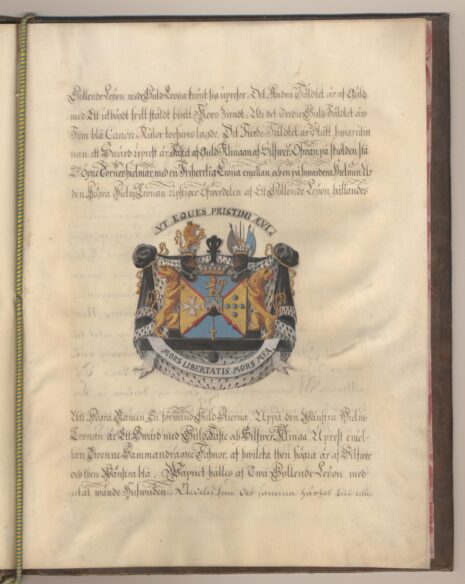 Gyllende Leyon med Guld Crona krönt ha uprefer. Det Andra Fäldet är af Guld,
med Ett utbögt fritt stäldt hwitt Kors ziradt. Uti det Tredie Guld Fältet är
Fem blå Canon Kulor korswis lagde. Det Fierde Fältet är Blått hwarutin
nan ett Swärd uprest är Fästet af Guld Klingan af Silfwer. Ofwan på Skiölden stå
2ne Öpne Tornerhielmar med en Friherrlig Crona emellan och en på hwardera Hielmen Ur
den Högra Hielm Cronan upstiger Öfwerdelen af Ett Gyllende Leyon, hållandes
VT EQUES PRISTINI ÆVI
MORS LIBERTATIS MORS MEA
Uti Högra Ramen En förnämd Guld Stierna. Uppå den Wänstra Hielm
Cronan är Ett Swärd med Guld Fäste och Silfwer Klinga Uprest emel
lan Twenne Sammandragne Fahnor, af hwilcka then högra är af Silfwer
och then Wänstra blå. Wapnet hålles af Twå Gyllende Leyon med
utat wände Hufwuden. som det samma härhos till